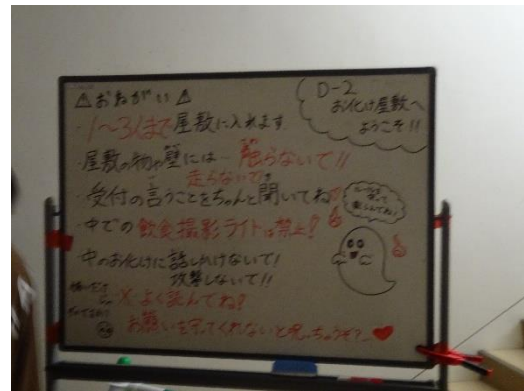 ⚠おねがい⚠
D-2
お化け屋敷へ
ようこそ!!
・1〜3人まで屋敷に入れます
・屋敷の物や壁には…触らないで!!
走らないで
・受付の言うことをちゃんと聞いてね
ルールを
守って
楽しんでね!
・中での飲食撮影ライトは禁止!
・中のお化けに話しかけないで!
攻撃しないで!!
※よく読んでね?
お願いを守ってくれないと呪っちゃうぞ?